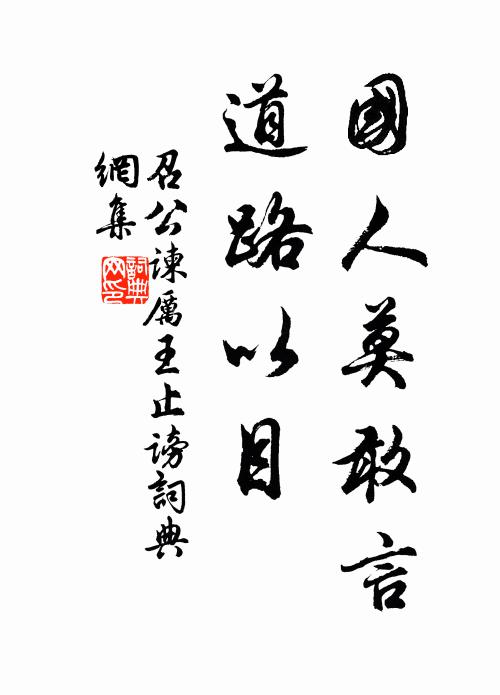 國人莫敢言
道路以目
召公諫厲王止謗詞典
網集
詞典
网印